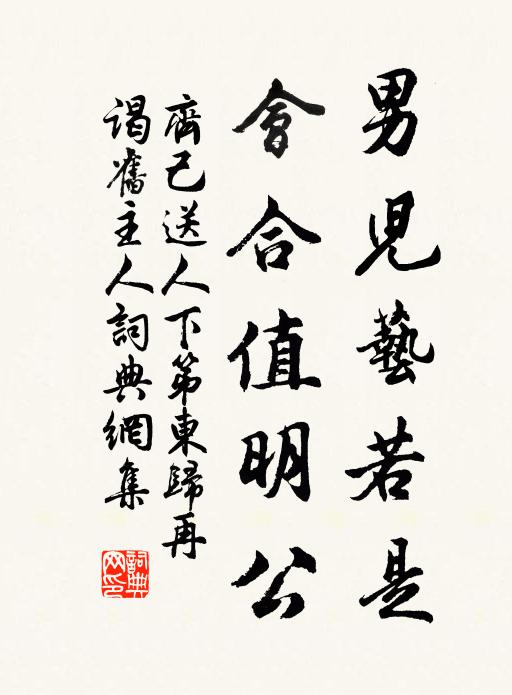 男兒藝若是
會合值明公
齊己送人下第東歸再
謁舊主人詞典網集
詞典
网印